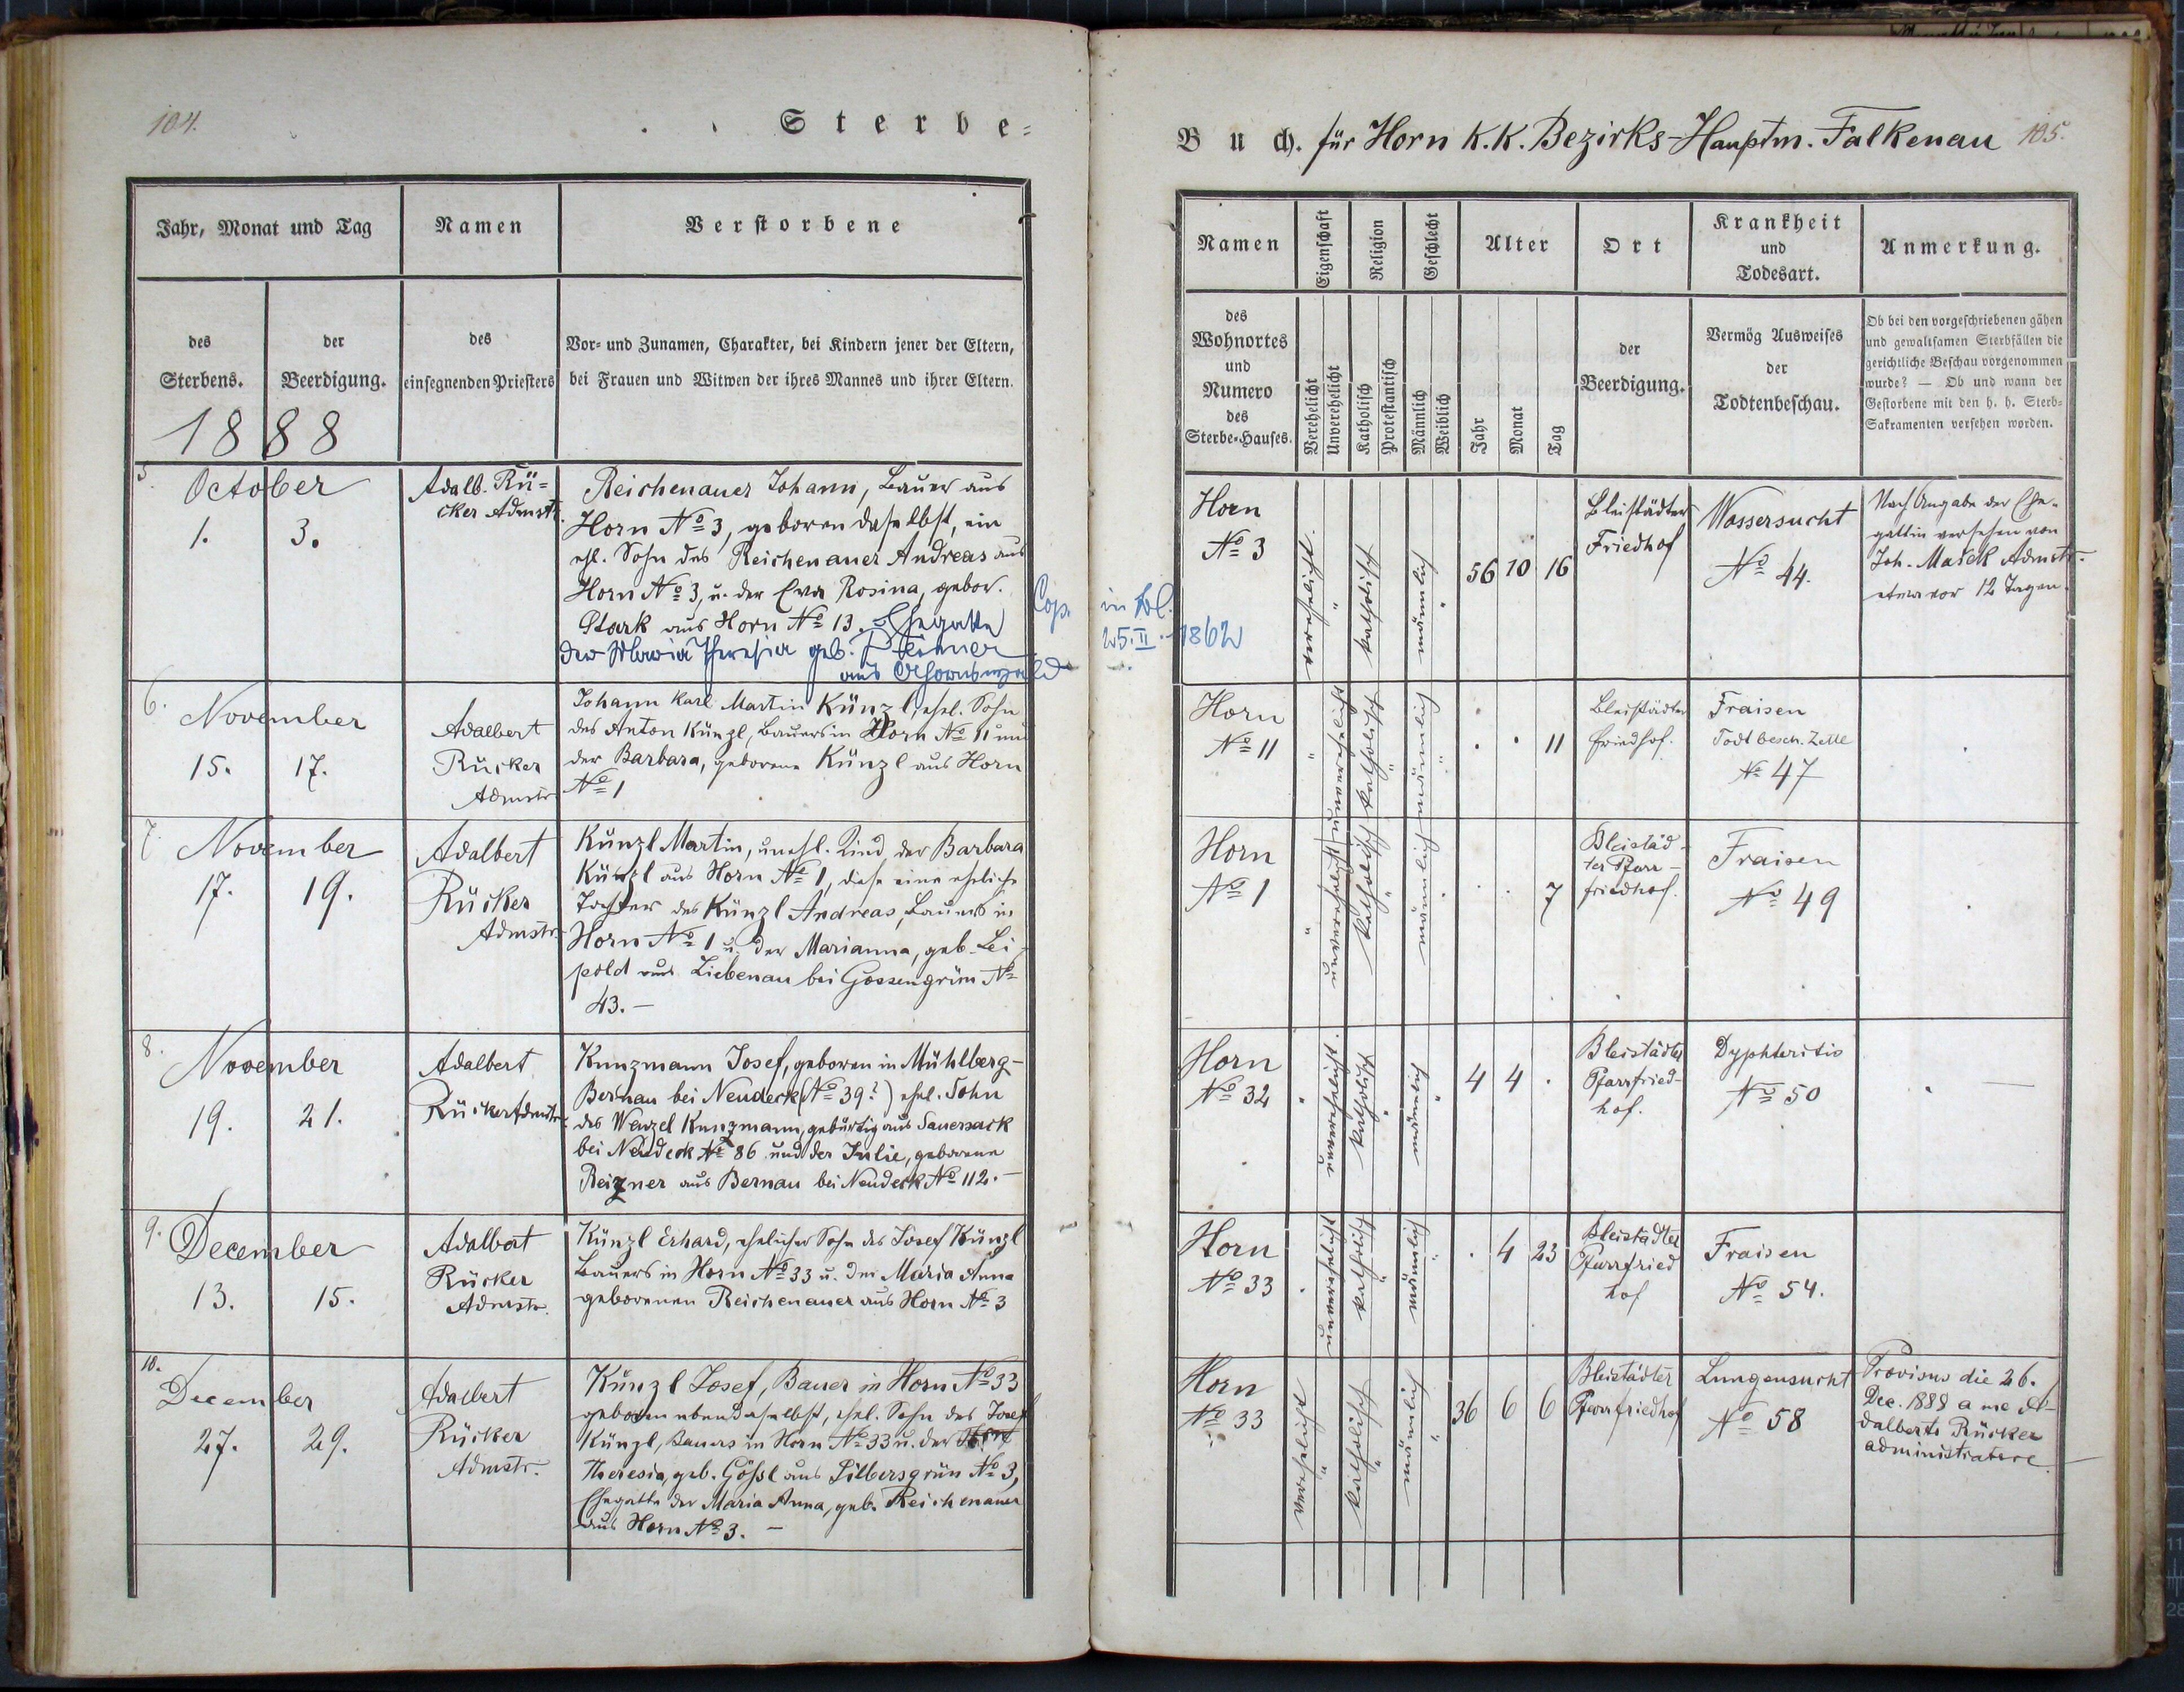 104.
Sterbe=
Jahr, Monat und Tag
Namen
Verstorbene
des
Sterbens.
der
Beerdigung.
des
einsegnenden Priesters
Vor- und Zunamen, Charakter, bei Kindern jener der Eltern,
bei Frauen und Witwen der ihres Mannes und ihrer Eltern.
1888
5.
October
1. 3.
Adalb. Rü=
cker Admstr.
Reichenauer Johann, Bauer aus
Horn No 3, geboren daselbst, ein
ehl. Sohn des Reichenauer Andreas aus
Horn No 3, u. der Eva Rosina, gebor.
Stark aus Horn No 13. Ehegatte
der Maria Theresia geb.
aus Ahornswald
Cop. in
25.II.1862
6.
November
15. 17.
Adalbert
Rücker
Admstr.
Johann Karl Martin Künzl, ehel. Sohn
des Anton Künzl, Bauers in Horn No 11 und
der Barbara, geborene Künzl aus Horn
No 1
7.
November
17. 19.
Adalbert
Rücker
Admstr.
Künzl Martin, unehl. Kind der Barbara
Künzl aus Horn No 1, diese eine eheliche
Tochter des Künzl Andreas, Bauers in
Horn No 1 u. der Marianna, geb. Lei-
pold aus Liebenau bei Gossengrün No
43.-
8.
November
19. 21.
Adalbert
Rücker Admstr.
Kunzmann Josef, geboren in Mühlberg-
Bernau bei Neudeck (No 39?) ehel. Sohn
des Wenzel Kunzmann, gebürtig aus Sauersack
bei Neudeck No 86 und der Julie, geborene
Reizner aus Bernau bei Neudeck No 112.-
9.
December
13. 15.
Adalbert
Rücker
Admstr.
Künzl Erhard, ehelicher Sohn des Josef Künzl
Bauers in Horn No 33 u. der Maria Anna
geborenen Reichenauer aus Horn No 3
10.
December
27. 29.
Adalbert
Rücker
Admstr.
Künzl Josef, Bauer in Horn No 33
geboren ebendaselbst, ehel. Sohn des Josef
Künzl, Bauers in Horn No 33 u. der
Theresia, geb. Gößl aus Silbersgrün No 3,
Ehegatte der Maria Anna, geb. Reichenauer
aus Horn No 3. -
Buch. für Horn K.K. Bezirks-Hauptm. Falkenau 105.
Namen
Eigenschaft
Religion
Geschlecht
Alter
Ort
Krankheit
und
Todesart.
Anmerkung.
des
Wohnortes
und
Numero
des
Sterbe-Hauses.
Verehelicht
Unverehelicht
Katholisch
Protestantisch
Männlich
Weiblich
Jahr
Monat
Tag
der
Beerdigung.
Vermög Ausweises
der
Todtenbeschau.
Ob bei den vorgeschriebenen gähen
und gewaltsamen Sterbfällen die
gerichtliche Beschau vorgenommen
wurde? — Ob und wann der
Gestorbene mit den h. h. Sterb-
Sakramenten versehen worden.
Horn
No 3
verehelicht.
katholisch
männlich
56 10 16
Bleistädter
Friedhof
Wassersucht
No 44.
Nach Angabe der Ehe-
gattin versehen von
Joh. Mašek Admstr.
etwa vor 12 Tagen.
Horn
No 11
unverehelicht
katholisch
männlich
11
Bleistädter
Friedhof.
Fraisen
Todtbesch. Zettl
No 47
Horn
No 1
unverehelicht
katholisch
männlich
7
Bleistäd-
ter Pfarr-
friedhof.
Fraisen
No 49
Horn
No 32
unverehelicht.
katholisch
männlich
4 4
Bleistädter
Pfarrfried-
hof.
Dyphteritis
No 50
Horn
No 33
unverehelicht
katholisch
männlich
4 23
Bleistädter
Pfarrfried
hof
Fraisen
No 54.
Horn
No 33
verehelicht
katholisch
männlich
36 6 6
Bleistädter
Pfarrfriedhof
Lungensucht
No 58
Provisus die 26.
Dec. 1888 a me A-
dalberto Rücker
administratore.